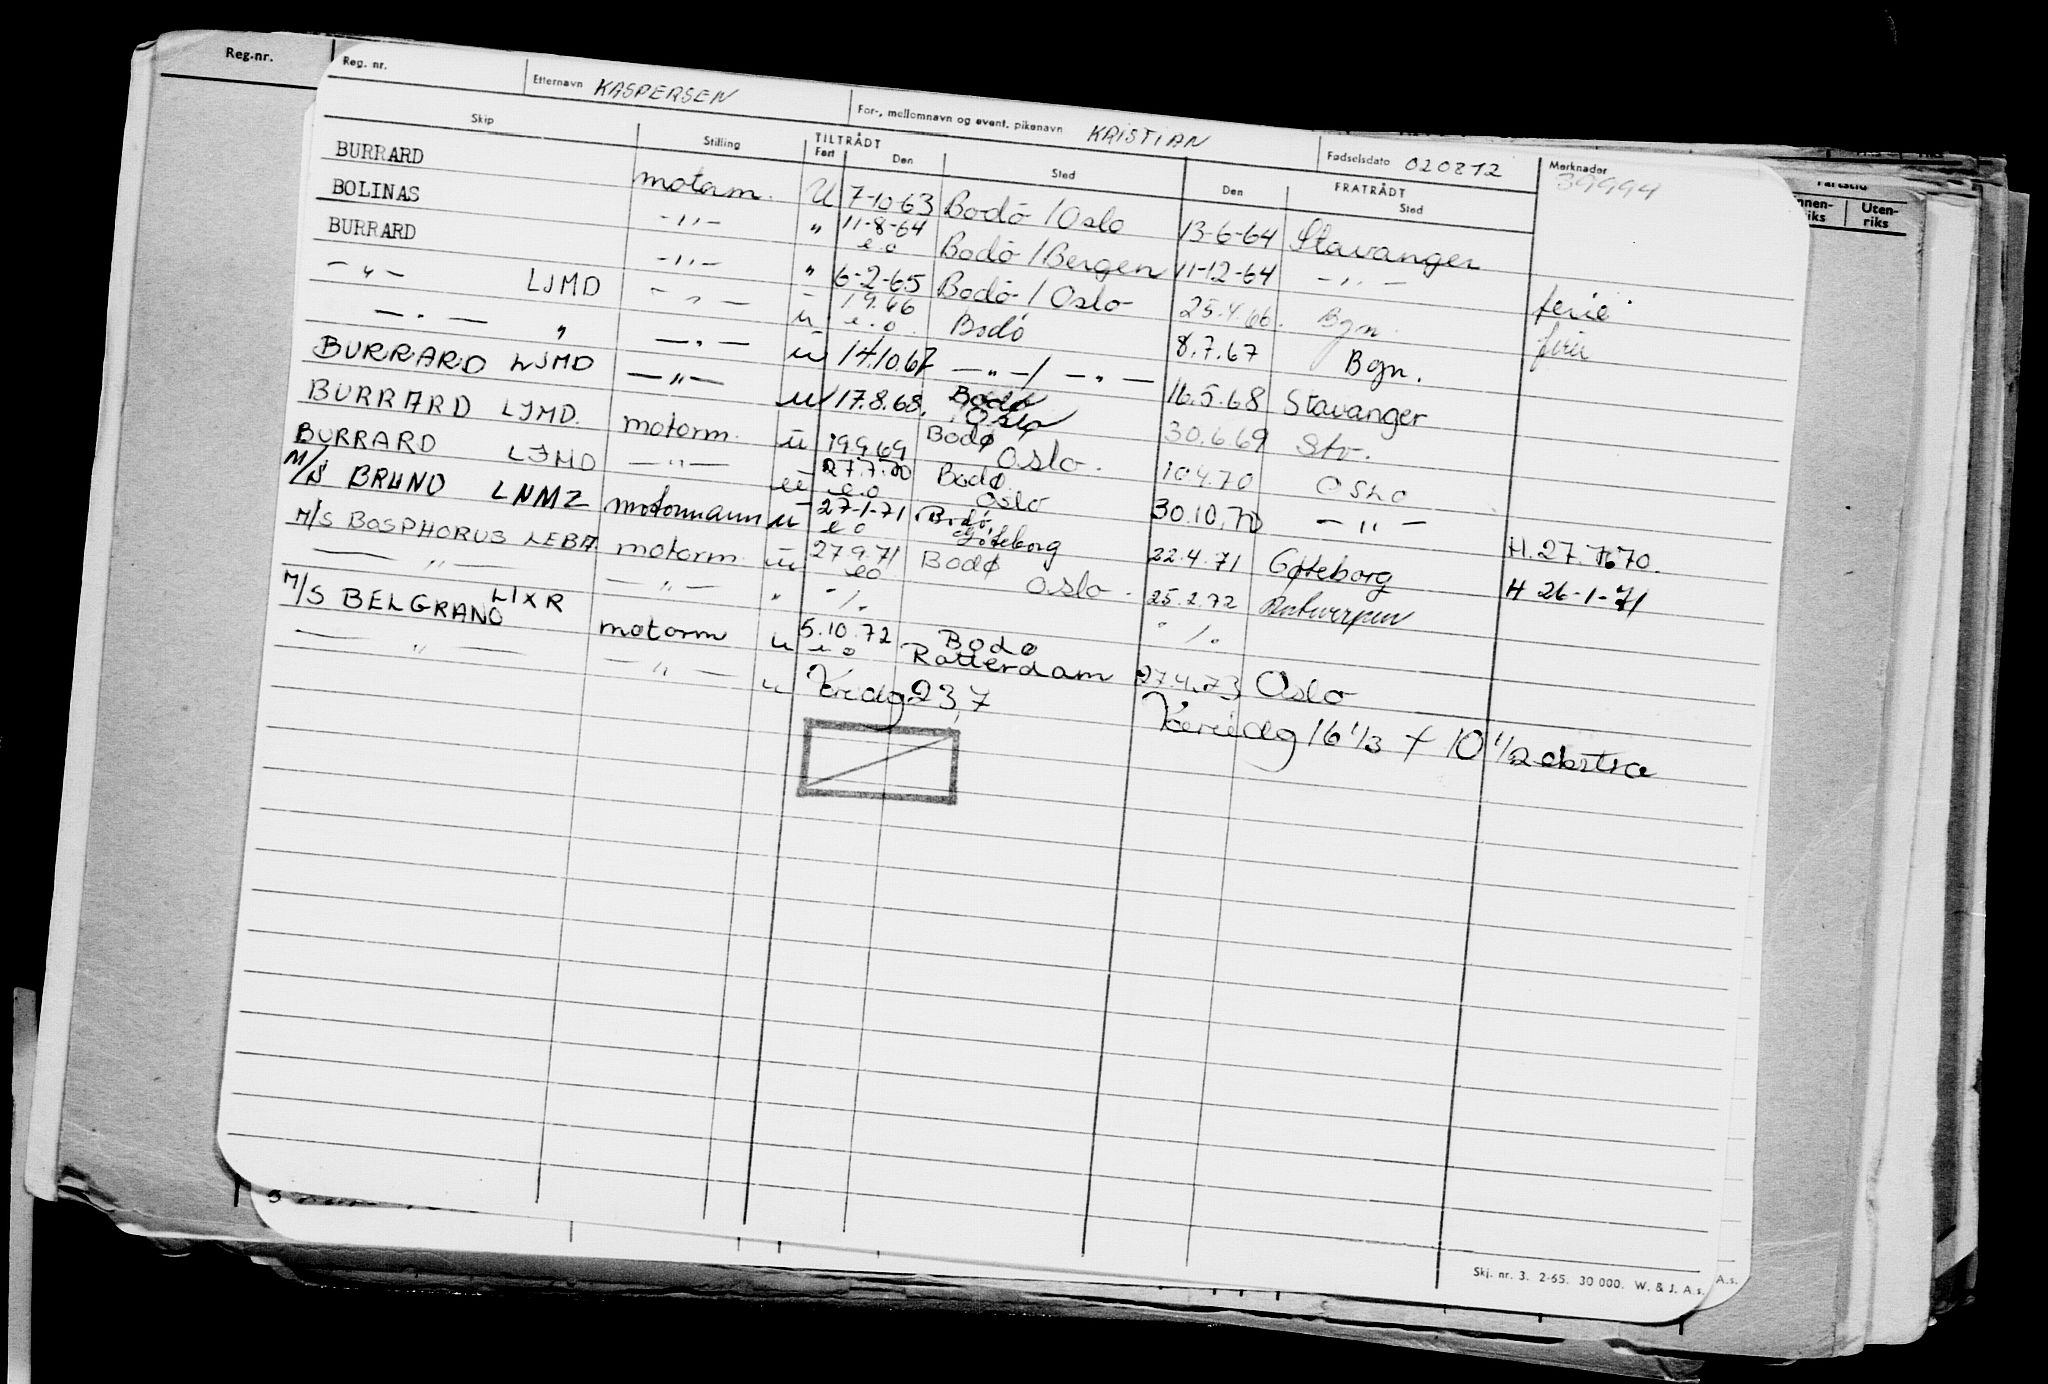 Reg.-nr.
Reg. nr. Etternavn KASPERSEN For-, mellomnavn og event. pikenavn KRISTIAN Fødselsdato 020812 Merknader 39994
Skip Stilling TILTRÅDT Fart Den Sted FRATRÅDT Den Sted
BURRARD motorm. U 7-10-63 Bodø / Oslo 13-6-64 Stavanger
BOLINAS -"- " 11-8-64 e.o Bodø / Bergen 11-12-64 -"-
BURRARD -"- " 6-2-65 Bodø / Oslo 25.4.66. Bgn. ferie
-"- LJMD -"- u 1.9.66 e.o. Bodø 8.7.67 Bgn. ferie
-"- " -"- u 14.10.67 -"-/-"- 16.5.68 Stavanger
BURRARD LJMD -"- u 17.8.68. Bodø Oslo 30.6.69 Stv.
BURRARD LJMD. motorm. u 19.9.69 Bodø Oslo. 10.4.70 OSLO
BURRARD LJMD -"- u 27.7.70 e.o Bodø Oslo 30.10.70 -"- H. 27.7.70.
M/S BRUNO LNMZ motormann u 27-1-71 e o Bodø, Gøteborg 22.4.71 Gøteborg H 26-1-71
M/S BOSPHORUS LEBA motorm. u 27.9.71 eo Bodø Oslo. 25.2.72 Antwerpen
-"- -"- " -/. ./.
M/S BELGRANO LIXR motorm u 5.10.72 e o Bodø Rotterdam 27.4.73 Oslo
-"- -"- u 23,7 16 1/3 + 10 1/2 ekstra
Fartstid
Innen-riks Uten-riks
Skj. nr. 3. 2-65. 30 000. W. & J. A.s.
A.s.